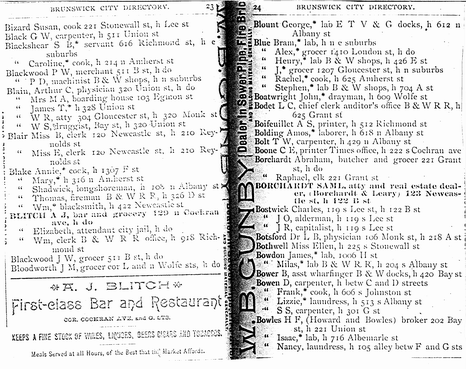 BRUNSWICK CITY DIRECTORY. 23
Bizard Susan, cook 221 Stonewall st, h Lee st
Black G W, carpenter, h 511 Union st
Blackshear S B,* servant 616 Richmond st, h e
suburbs
" Caroline,* cook, h 214 n Amherst st
Blackwood P W, merchant 511 B st, h do
" P D, machinist B & W shops, h n suburbs
Blain, Arthur C, physician 320 Union st, h do
" Mrs M A, boarding house 103 Egmon st
" James T,* h 328 Union st
" W R, atty 304 Gloucester st, h 320 Monk st
" W S, druggist, Bay st, h 320 Union st
Blair Miss B, clerk 120 Newcastle st, h 210 Rey-
nolds st
" Miss E, clerk 120 Newcastle st, h 210 Rey-
nolds st
Blake Annie,* cook, h 1307 F st
" Mary,* h 316 n Amherst st
" Shadwick, longshoreman, h 108 n Albany st
" Thomas, fireman B & W R R, h 326 D st
" Wm,* blacksmith, h 422 Newcastle st
BLITCH A J, bar and grocery 129 n Cochran
ave, h do
" Elizabeth, attendant city jail, h do
" Wm, clerk B & W R R office, h 918 Rich-
mond st
Blackwood J W, grocer 511 B st, h do
Bloodworth J M, grocer cor L and n Wolfe sts, h do
A. J. BLITCH
First-class Bar and Restaurant
COR. COCHRAN AVE. and G. STS.
KEEPS A FINE STOCK OF WINES, LIQUORS, BEERS CIGARS AND TOBACCOS.
Meals Served at all Hours, of the Best that the Market Affords.
W. B. GUNBY
Dealer in Sewer Pipe, Fire Bric
24 BRUNSWICK CITY DIRECTORY.
Blount George,* lab E T V & G docks, h 612 n
Albany st
Blue Bram,* lab, h n e suburbs
" Alex,* grocer 1410 London st, h do
" Henry,* lab B & W shops, h 426 E st
" J,* grocer 1207 Gloucester st, h n suburbs
" Rachel,* cook, h 625 Amherst st
" Stephen,* lab B & W shops, h 704 A st
Boatwright John,* drayman, h 609 Wolfe st
Bodet L C, chief clerk auditor's office B & W R R, h
625 Grant st
Boifeuillet A S, printer, h 512 Richmond st
Bolding Amos,* laborer, h 618 n Albany st
Bolt T W, carpenter, h 429 n Albany st
Boone C E, printer Times office, h 222 s Cochran ave
Borchardt Abraham, butcher and grocer 221 Grant
st, h do
" Raphael, clk 221 Grant st
BORCHARDT SAML, atty and real estate deal-
er, (Borchardt & Leary) 123 Newcas-
tle st, h 122 B st
Bostwick Charles, 119 s Lee st, h 122 B st
" J O, alderman, h 119 s Lee st
" J R, capitalist, h 119 s Lee st
Botsford Dr L B, physician 106 Monk st, h 218 A st
Bothwell Miss Ellen, h 225 s Stonewall st
Bowden James,* lab, h 1006 H st
" Milas,* lab B & W R R, h 204 s Albany st
Bower B, asst wharfinger B & W docks, h 420 Bay st
Bowen D, carpenter, h betw C and D streets
" Frank,* cook, h 606 s Johnston st
" Lizzie,* laundress, h 513 s Albany st
" S S, carpenter, h 301 G st
Bowles H F, (Howard and Bowles) broker 202 Bay
st, h 221 Union st
" Isaac,* lab, h 716 Albemarle st
" Nancy, laundress, h 105 alley betw F and G sts